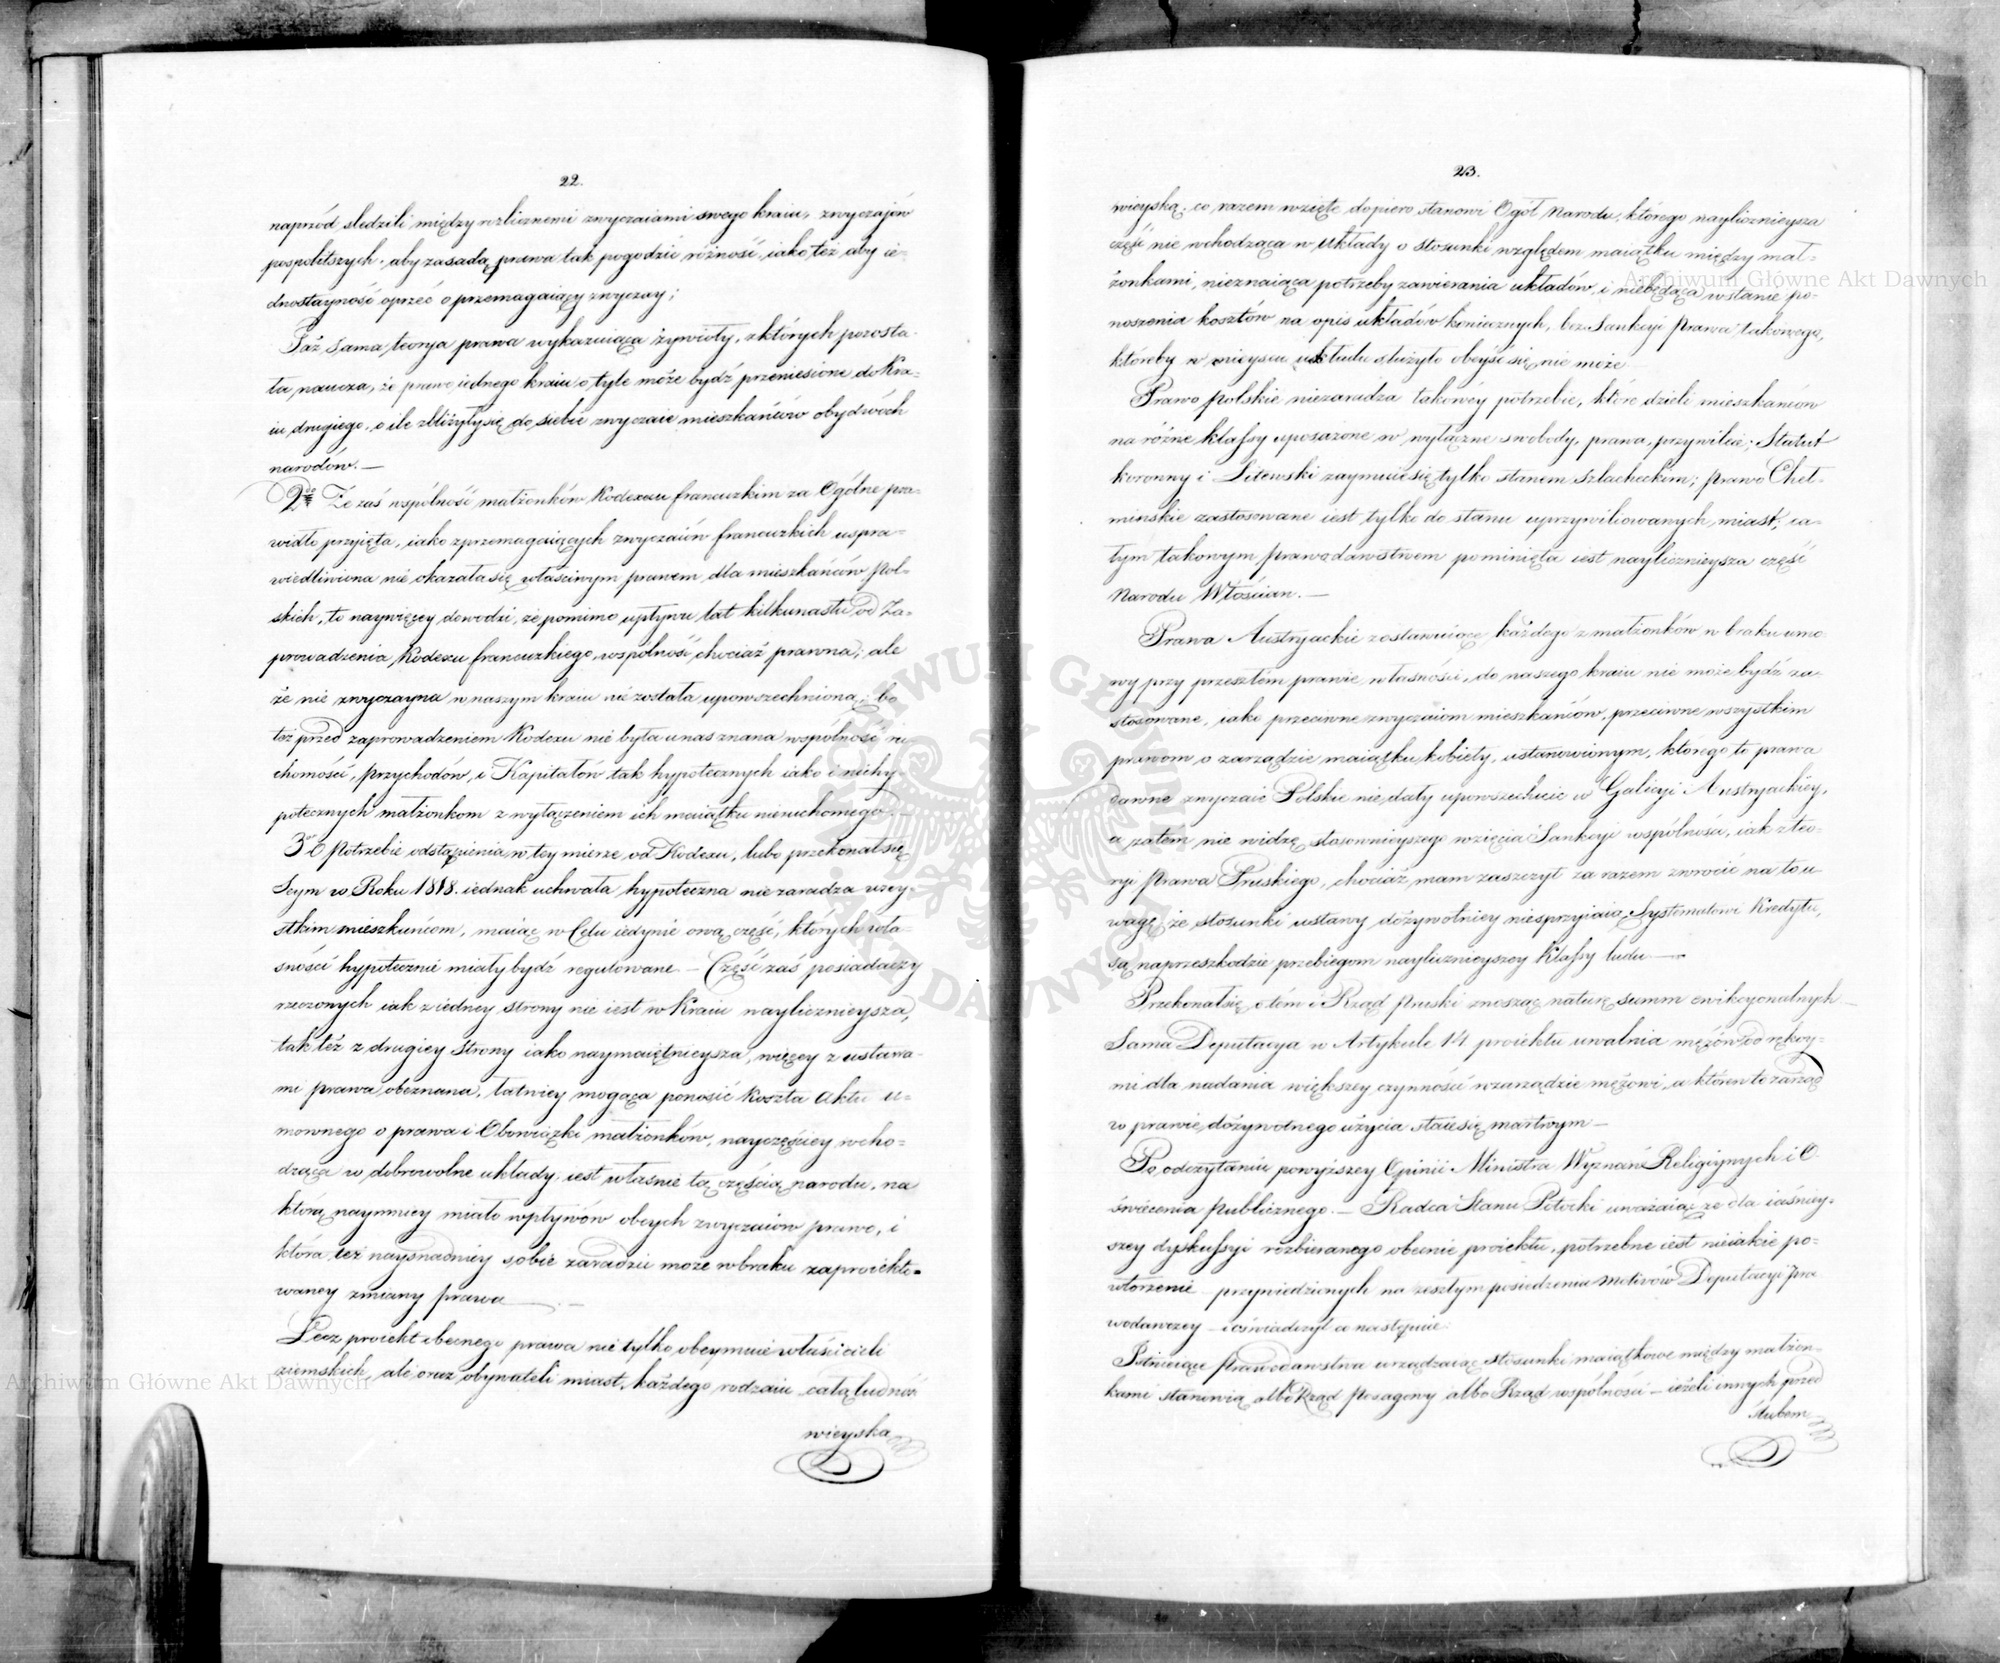 22.
naprzód sledzili między rozlicznemi zwyczaiami swego kraiu, zwyczajów
pospolitszych, aby zasadą prawa tak pogodzić różność, iako też aby ie-
dnostayność oprzeć o przemagaiący zwyczay;
Taż sama teorya prawa wykazuiąca żywioły, z których pozosta-
ła, naucza, że prawo iednego kraiu o tyle może bydź przeniesione do Kra-
iu drugiego, o ile zbliżyły się do siebie zwyczaie mieszkańców obydwóch
narodów. —
2re Że zaś wspólność małżonków Kodexem francuzkim za Ogólne pra-
widło przyięta, iako z przemagaiących zwyczaiów francuzkich uspra-
wiedliwiona nie okazała się właściwym prawem dla mieszkańców Pol-
skich, to naywięcey dowodzi, że pomimo upływu lat kilkunastu od Za-
prowadzenia Kodexu francuzkiego, wspólność chociaż prawna, ale
że nie zwyczayna w naszym kraiu nie została upowszechnioną; bo
też przed zaprowadzeniem Kodexu nie była u nas znana wspólność ru-
chomości, przychodów, i Kapitałów tak hypotecznych iako i niehy-
potecznych małżonkom z wyłączeniem ich maiątku nieruchomego. —
3e O potrzebie odstąpienia w tey mierze od Kodexu, lubo przekonał się
Seym w Roku 1818. iednak uchwała hypoteczna nie zaradza wszy-
stkim mieszkańcom, maiąc w Celu iedynie ową część, których wła-
sności hypotecznie miały bydź regulowane — Część zaś posiadaczy
rzeczonych iak z iedney strony nie iest w Kraiu nayliczniejsza,
tak też z drugiey strony iako naymaiętnieysza, więcey z ustawa-
mi prawa obeznana, łatwiey mogąca ponosić koszta Aktu u-
mownego o prawa i Obowiązki małżonków, nayczęściey wcho-
dząca w dobrowolne układy, iest właśnie tą częścią narodu, na
którą naymniey miało wpływów obcych zwyczaiów prawo, i
która też naysnadniey sobie zaradzić może w braku zaproiekto-
waney zmiany prawa —
Lecz proiekt obecnego prawa nie tylko obeymuie właścicieli
ziemskich, ale oraz obywateli miast, każdego rodzaiu całą ludność
wieyską
23.
wieyską; co razem wzięte dopiero stanowi Ogół Narodu, którego naylicznieysza
część nie wchodząca w Układy o stosunki względem maiątku między mał-
żonkami, nieznaiąca potrzeby zawierania układów, i niebędąca w stanie po-
noszenia kosztów na opis układów koniecznych, bez Sankcyi Prawa takowego,
któreby w mieyscu układu służyło obeyść się nie może —
Prawo Polskie niezaradza takowey potrzebie, które dzieli mieszkańców
na różne klassy uposażone w wyłączne swobody, prawa, przywileie; Statut
koronny i Litewski zaymuie się tylko stanem szlacheckim; prawo Cheł-
minskie zastosowane iest tylko do stanu uprzywiliowanych miast; ca-
łym takowym prawodawstwem pominięta iest naylicznieysza część
Narodu Włościan. —
Prawa Austryackie zostawuiące każdego z małżonków w braku umo-
wy przy przeszłem prawie własności, do naszego kraiu nie może bydź za-
stosowane, iako przeciwne zwyczaiom mieszkańców, przeciwne wszystkim
prawom o zarządzie maiątku kobiety, ustanowionym, którego to prawa
dawne zwyczaie Polskie nie dały upowszechnić w Galicyi Austryackiey,
a zatém nie widzę stosownieyszego wzięcia Sankcyi wspólności, iak z teo-
ryi Prawa Pruskiego, chociaż mam zaszczyt za razem zwrócić na to u-
wagę, że stosunki ustawy dożywotniey niesprzyiaią Systematowi Kredytu,
są naprzeszkodzie przebiegom naylicznieyszey Klassy ludu —
Przekonał się o tém i Rząd Pruski znosząc naturę summ ewikcyonalnych —
Sama Deputacya w Artykule 14 proiektu uwalnia mężów od rękoy-
mi dla nadania większey czynności w zarządzie mężowi, a któren to zarząd
w prawie dożywotnego użycia staie się martwym —
Po odczytaniu powyższey Opinii Ministra Wyznań Religiynych i O-
świecenia Publicznego. — Radca Stanu Potocki uważaiąc że dla iaśniey-
szey dyskussyi rozbieranego obecnie proiektu, potrzebne iest nieiakie po-
wtorzenie przywiedzionych na zeszłym posiedzeniu Motivów Deputacyi Pra-
wodawczey — i oświadczył co następuie:
Istnieiące Prawodawstwa urządzaiąc stosunki maiątkowe między małżon-
kami stanowią albo Rząd Posagowy albo Rząd wspólności — ieżeli innych przed
ślubem
Archiwum Główne Akt Dawnych
Archiwum Główne Akt Dawnych
ARCHIWUM GŁÓWNE AKT DAWNYCH